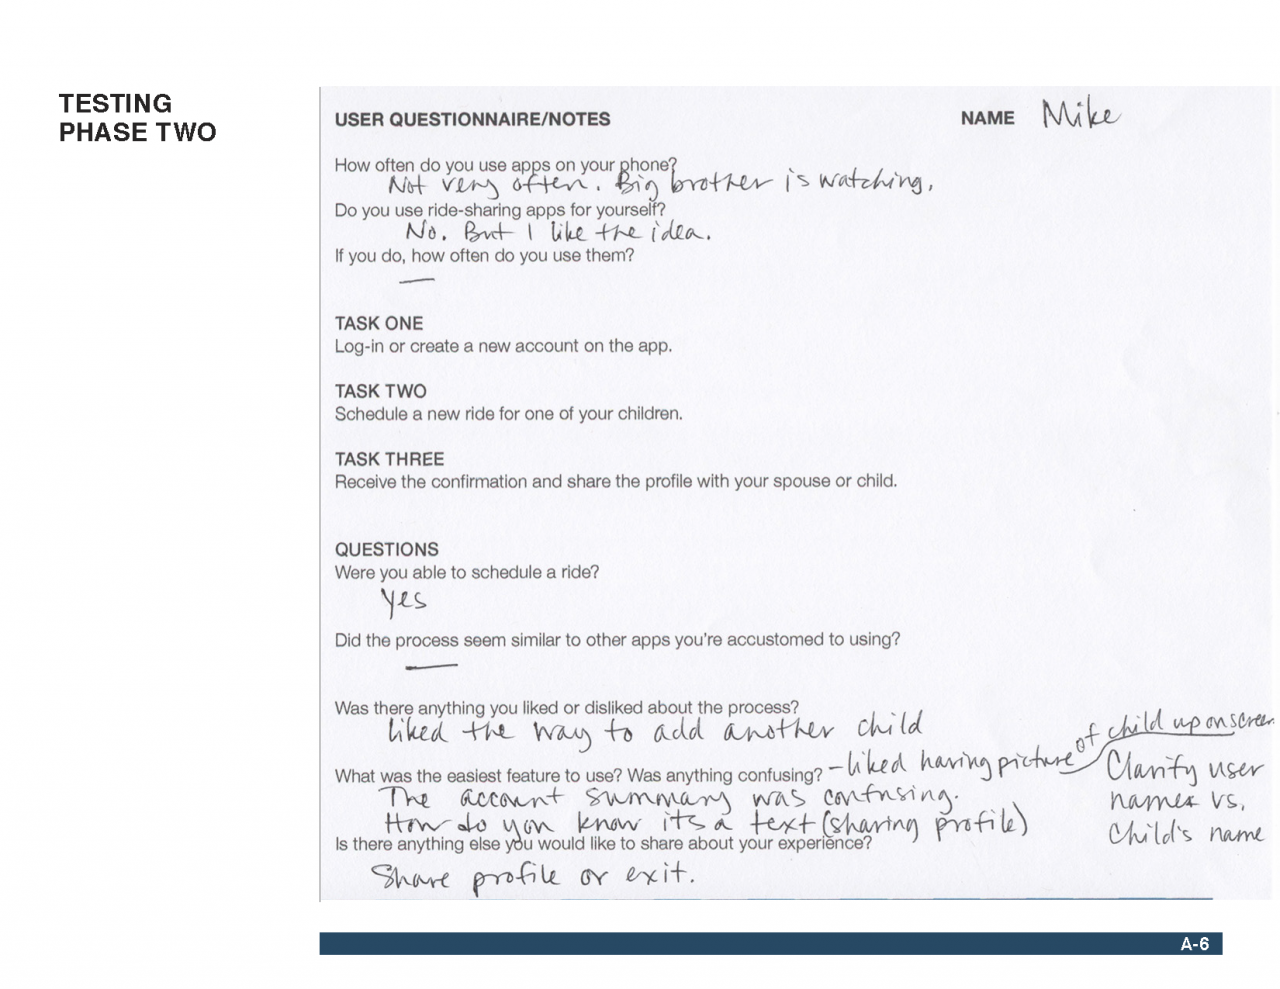 TESTING
PHASE TWO
USER QUESTIONNAIRE/NOTES NAME Mike
How often do you use apps on your phone?
Not very often. Big brother is watching.
Do you use ride-sharing apps for yourself?
No. But I like the idea.
If you do, how often do you use them?
—
TASK ONE
Log-in or create a new account on the app.
TASK TWO
Schedule a new ride for one of your children.
TASK THREE
Receive the confirmation and share the profile with your spouse or child.
QUESTIONS
Were you able to schedule a ride?
yes
Did the process seem similar to other apps you're accustomed to using?
—
Was there anything you liked or disliked about the process?
liked the way to add another child
What was the easiest feature to use? Was anything confusing? - liked having picture of child up on screen.
The account summary was confusing.
How do you know its a text (sharing profile)
Clarify user
names vs.
Child's name
Is there anything else you would like to share about your experience?
Share profile or exit.
A-6